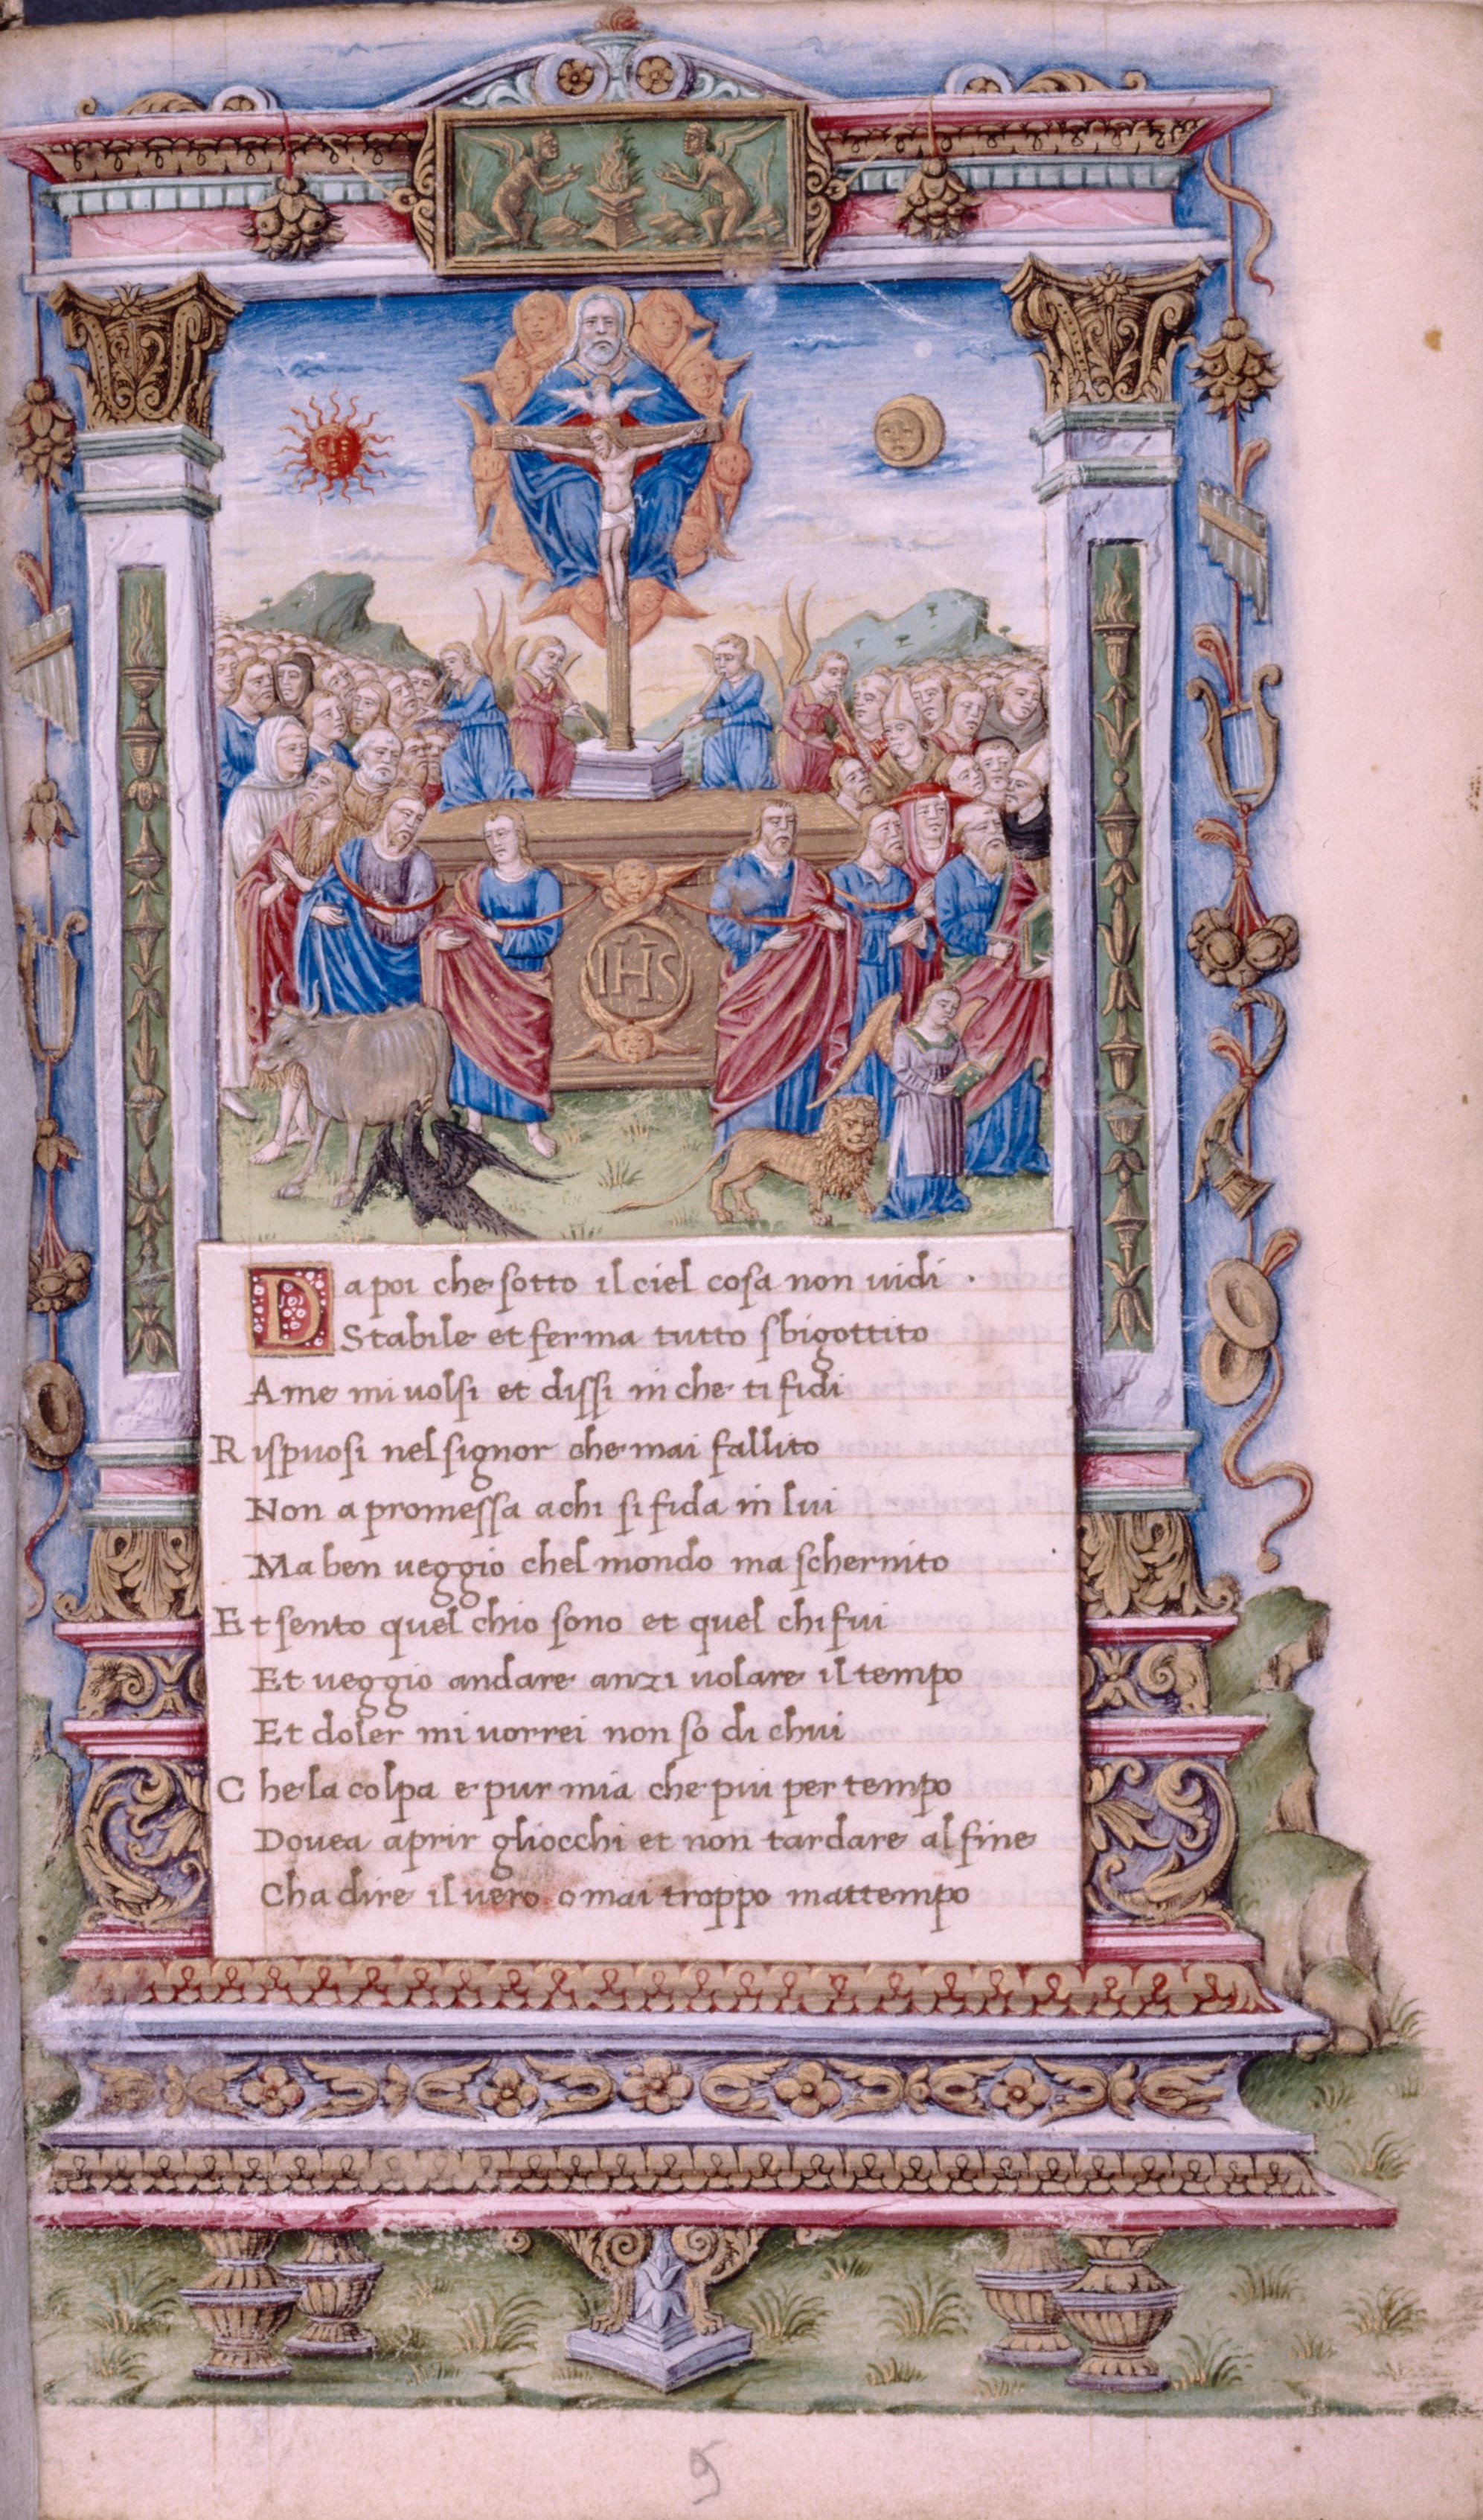 IHS
Dapoi che sotto il ciel cosa non uidi ·
Stabile et ferma tutto sbigottito
A me mi uolsi et dissi in che ti fidi
Rispuosi nel signor che mai fallito
Non a promessa a chi si fida in lui
Ma ben ueggio chel mondo ma schernito
Et sento quel chio sono et quel chi fui
Et ueggio andare anzi uolare il tempo
Et doler mi uorrei non so di chui
Che la colpa e pur mia che piu per tempo
Douea aprir gliocchi et non tardare al fine
Cha dire il uero omai troppo mattempo